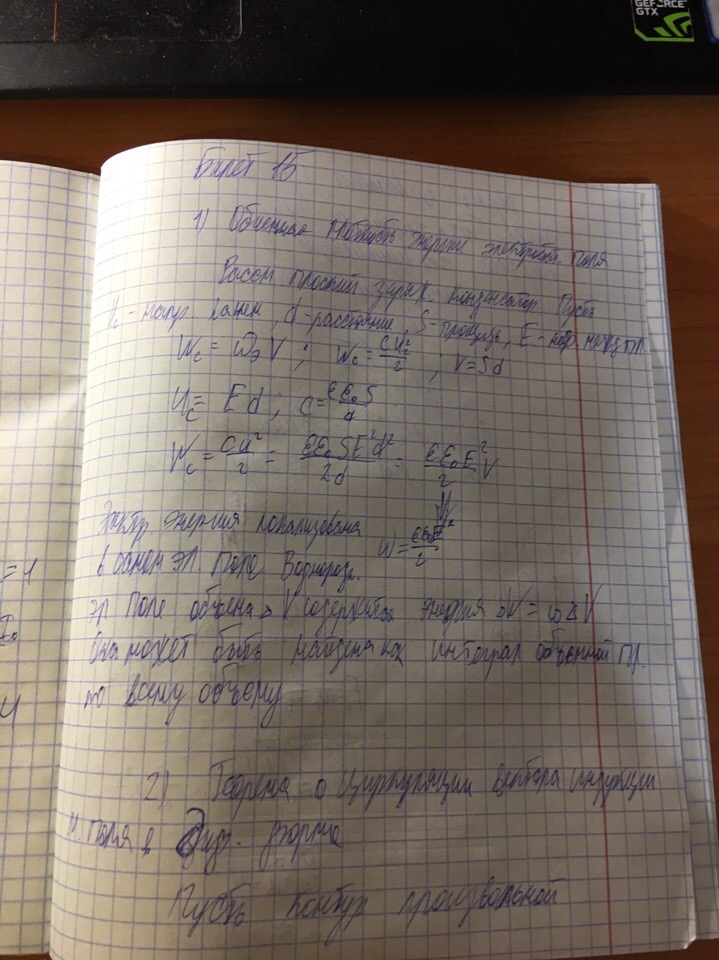 GEFORCE
GTX
Билет 15
1) Объемная плотность энергии электростат. поля
Рассм плоский заряж. конденсатор Пусть
U_c - напр , d - расстояние, S - площадь, E - напр. между пл
W_c = ω_э V ; W_c = CU_c²/2 ; V = Sd
U_c = Ed ; C = εε₀S/d
W_c = CU²/2 = εε₀SE²d²/2d = εε₀E²/2 V
⇓
Электр энергия локализована
ω = εε₀E²/2
в самом эл. поле. В однород.
эл поле объема ΔV содержится энергия ΔW = ωΔV
Она может быть найдена как интеграл объемной пл.
по всему объему
2) Теорема о циркуляции вектора индукции
м. поля в диф. форме
Пусть контур произвольной